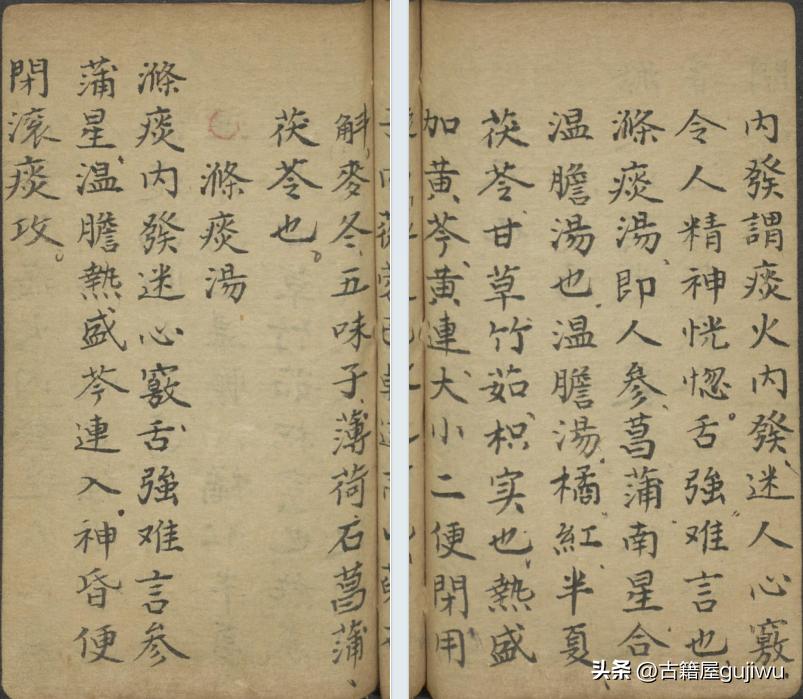 解麥冬、五味子、薄荷石菖蒲、
茯苓也。
滌痰湯
滌痰内發迷心竅、舌強难言參
蒲星、溫膽熱盛芩連入。神昏便
閉滚痰攻。
内發謂痰火内發、迷人心竅、
令人精神恍惚。舌強难言也
滌痰湯、即人參、菖蒲南星合
溫膽湯也。溫膽湯、橘紅、半夏、
茯苓甘草竹茹、枳实也、熱盛
加黃芩、黃連、大小二便閉用
头条 @古籍屋gujiwu